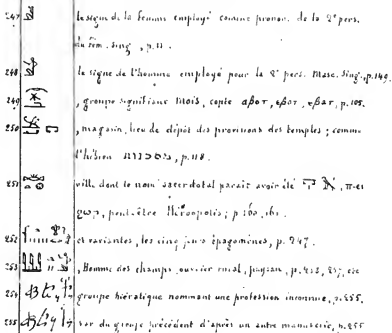 247 le signe de la femme employé comme pronom. de la 2e pers.
du fém. sing., p. 11.
248 le signe de l'homme employé pour la 2e pers. Masc. Sing., p. 149.
249 , groupe signifiant Mois, copte ⲁⲃⲟⲧ, ⲉⲃⲟⲧ, p. 105.
250 , magasin, lieu de dépôt des provisions des temples; comme
l'hébreu p. 118.
251 ville dont le nom sacerdotal paraît avoir été
peut-être p. 160, 161.
252 et variantes, les cinq jours épagomènes, p. 247.
253 , Homme des champs, ouvrier rural, paysan, p.
254 groupe hiératique nommant une profession inconnue, p. 255.
255 var du groupe précédent d'après un autre manuscrit, p. 255